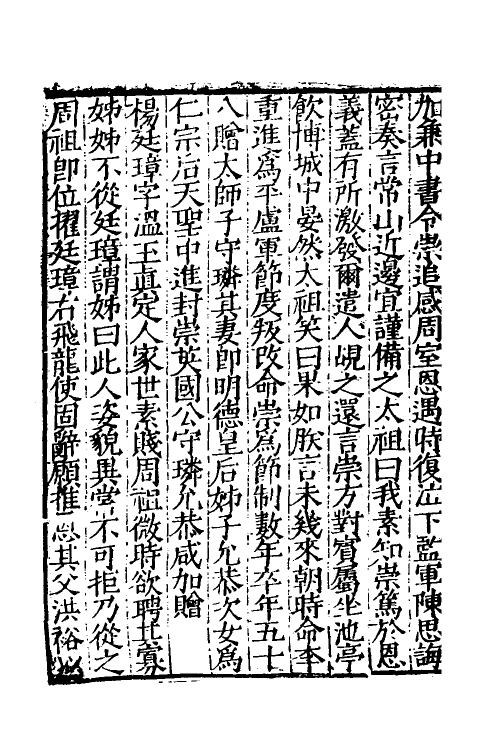 加兼中書令崇追感周室恩遇時復泣下監軍陳思誨
密奏言常山近邊宜謹備之太祖曰我素知崇篤於恩
義蓋有所激發爾遣人覘之還言崇方對賓屬坐池亭
飲博城中晏然太祖笑曰果如朕言未幾來朝時命李
重進爲平盧軍節度叛改命崇爲節制數年卒年五十
八贈太師子守璘其妻即明德皇后姊子允恭次女爲
仁宗后天聖中進封崇英國公守璘允恭咸加贈
楊廷璋字溫玉真定人家世素賤周祖微時欲聘其寡
姊姊不從廷璋謂姊曰此人姿貌異常不可拒乃從之
周祖卽位擢廷璋右飛龍使固辭願推恩其父洪裕